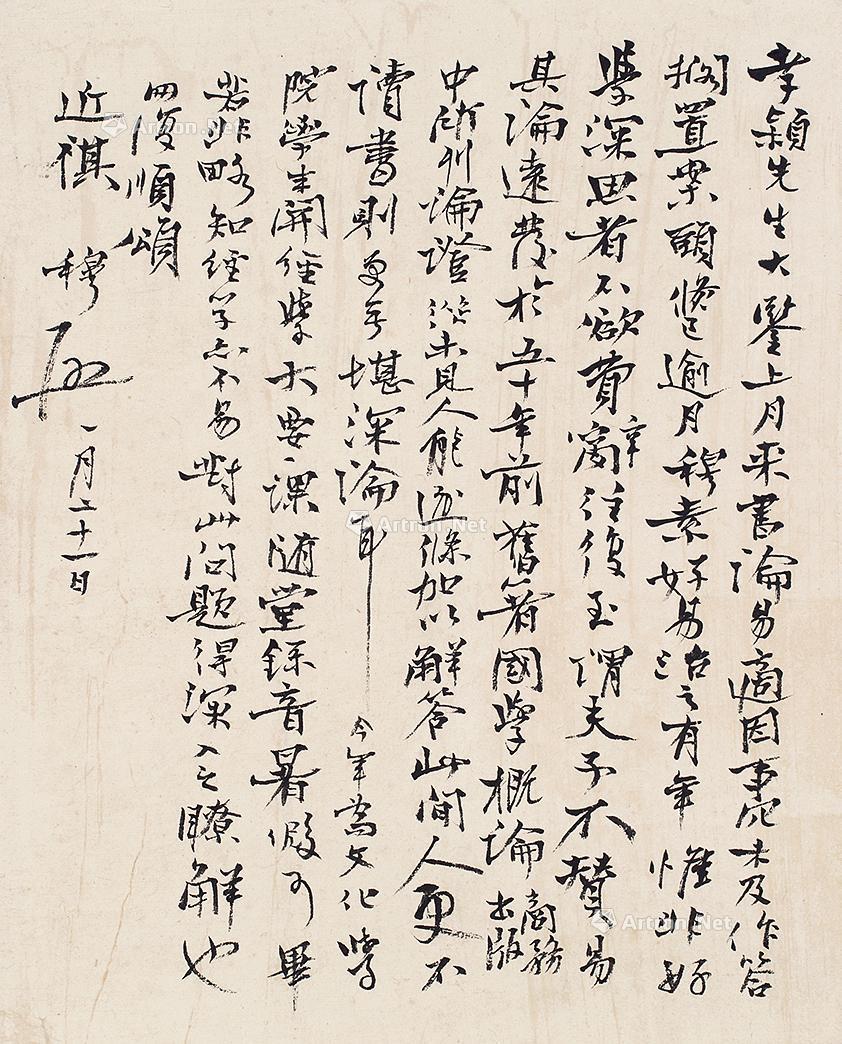 孝穎先生大鑒上月来書論易適因事冗未及作答
擱置案頭瞬已逾月穆素好易治之有年惟非好
學深思者不欲費辭往復至謂夫子不贊易
其論遠發於五十年前舊著國學概論商務出版
中所列論證從未見人能逐條加以解答此間人更不
讀書則更無堪深論耳 今年為文化學
院學生開經學大要課隨堂錄音暑假可畢
若非略知經學亦不易對此問題得深入之瞭解也
匆復順頌
近祺 穆 啟 一月二十一日
Artron.Net
Artron.Net
Artron.Net